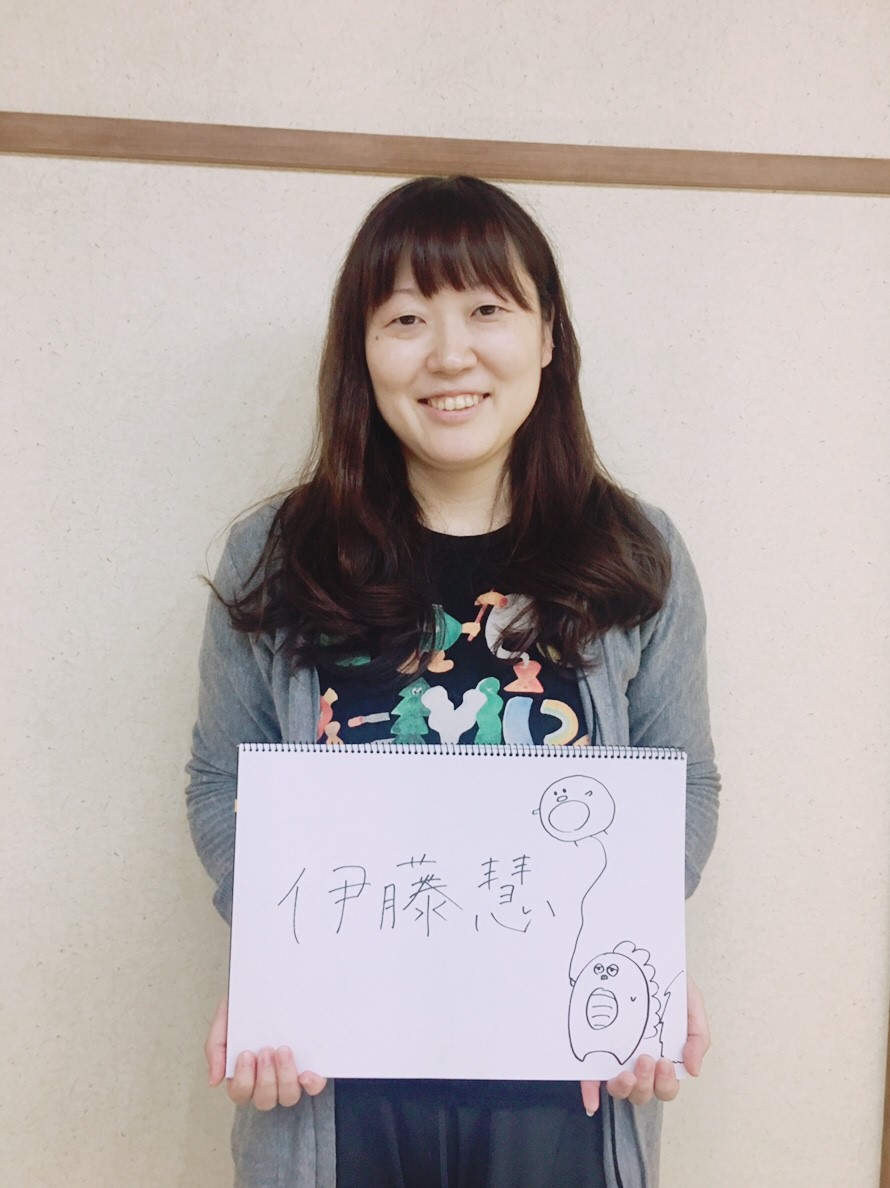 伊藤慧